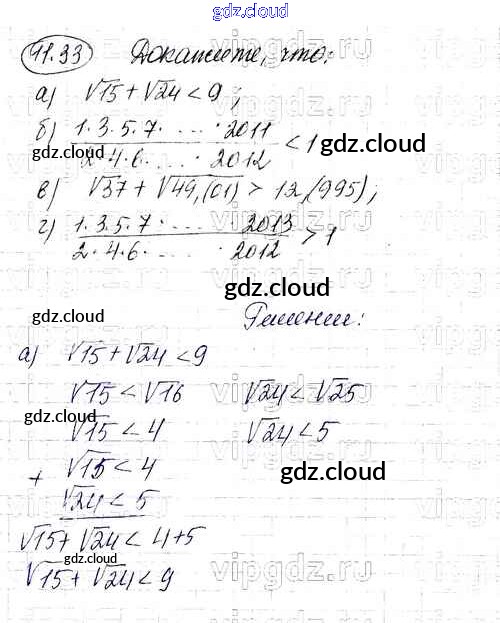 gdz.cloud
41.33 Докажите, что:
а) √15 + √24 < 9;
б) 1·3·5·7· ... ·2011 / 2·4·6· ... ·2012 < 1
gdz.cloud
gdz.cloud
в) √37 + √49,(01) > 12,(995);
г) 1·3·5·7· ... 2013 / 2·4·6· ... ·2012 > 1
gdz.cloud
gdz.cloud
Решение:
а) √15 + √24 < 9
√15 < √16 √24 < √25
gdz.cloud
√15 < 4 √24 < 5
+ √15 < 4
gdz.cloud
√24 < 5
√15 + √24 < 4+5
gdz.cloud
√15 + √24 < 9
vipgdz.com
gdz.cloud
gdz.cloud